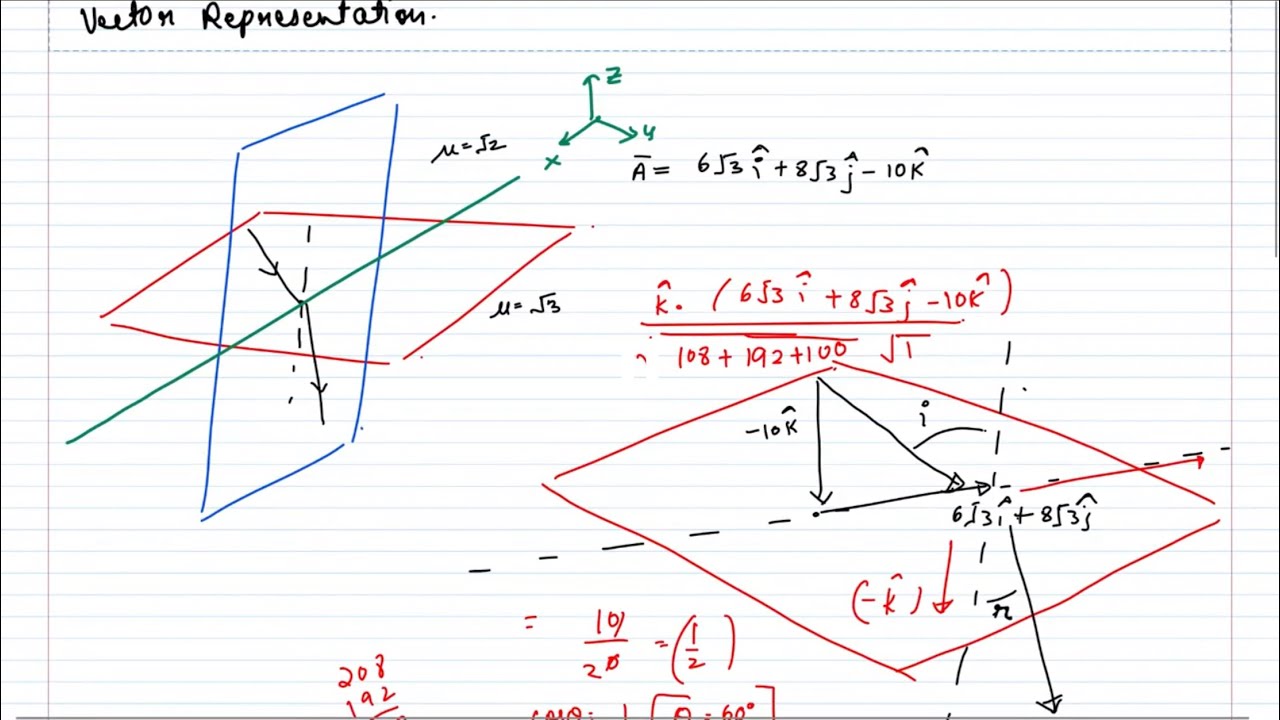 Vector Representation.
z
y
x
μ=√2
Ā= 6√3 î + 8√3 ĵ - 10k̂
μ=√3
k̂. (6√3 î + 8√3 ĵ - 10k̂)
√108 + 192 + 100 √1
-10k̂
i
6√3 î + 8√3 ĵ
(-k̂)
r
= 10/20 = (1/2)
208
192
cosθ= 1 θ = 60°